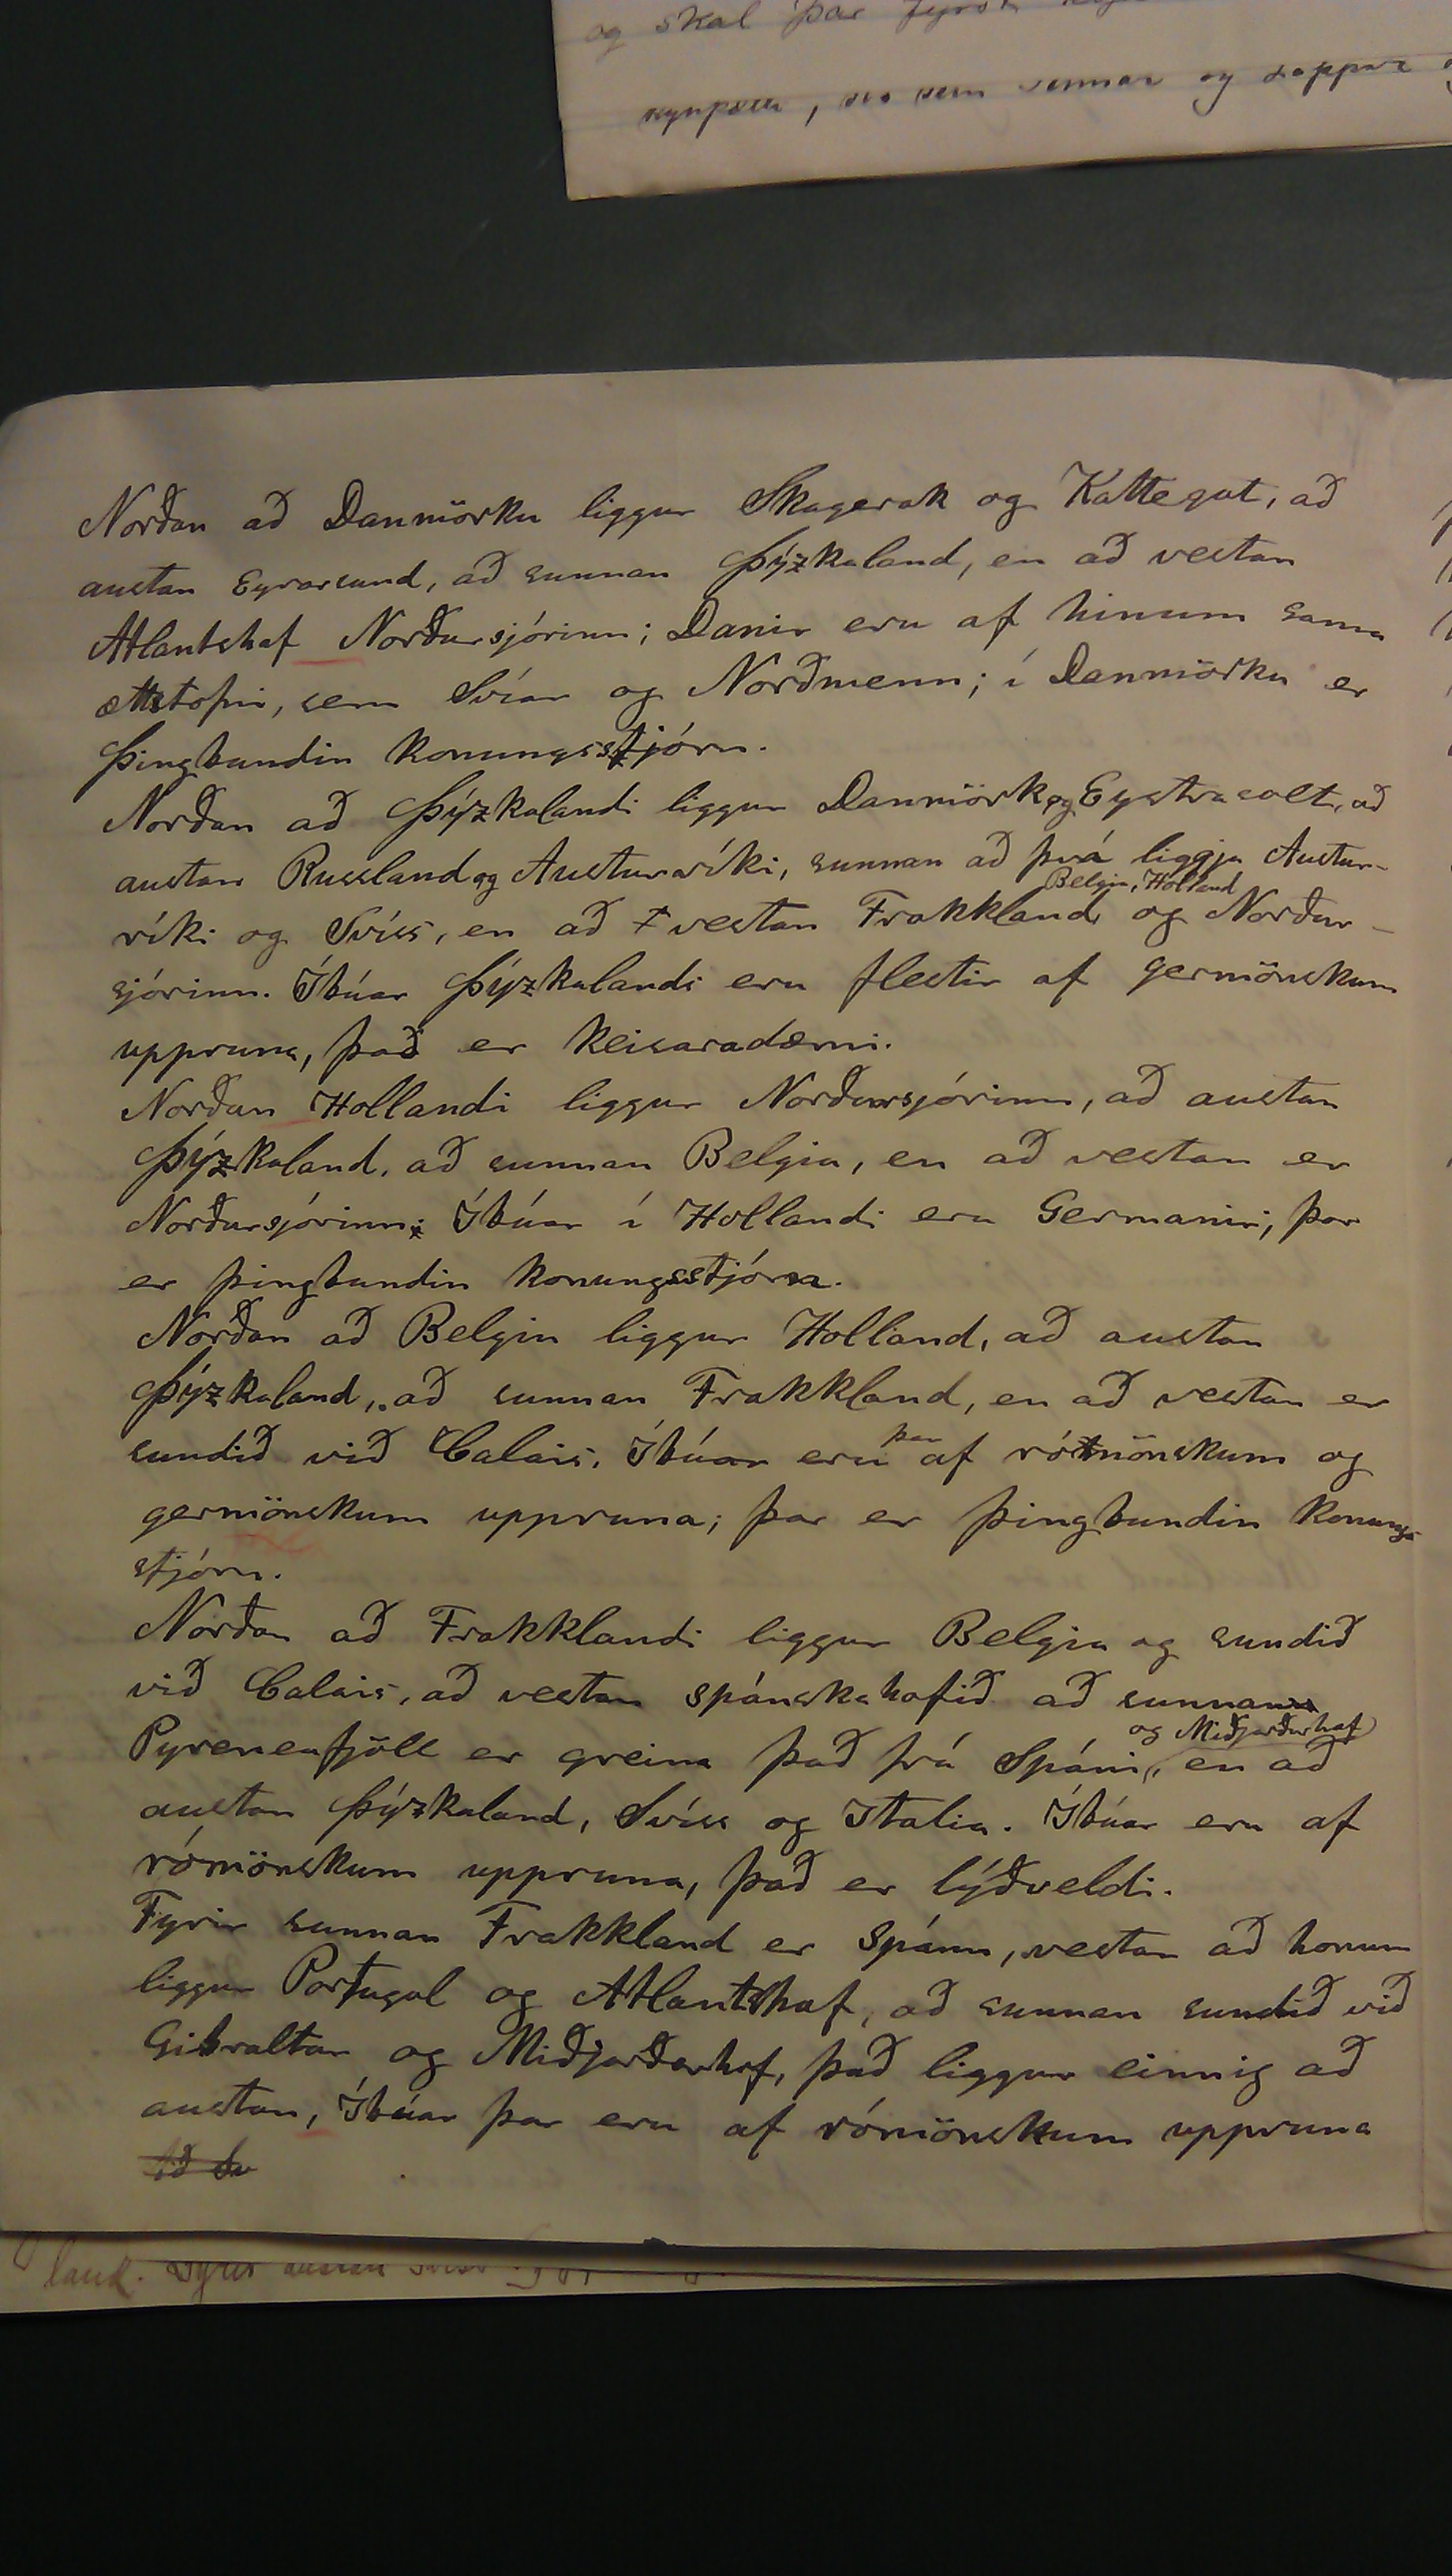 og skal þar fyrst
svo sem og
Norðan að Danmörku liggur Skagerak og Kattegat, að
austan Eyrarsund, að sunnan Þýzkaland, en að vestan
Atlantshaf Norðursjórinn; Danir eru af hinum sama
ættstofni, sem Svíar og Norðmenn; í Danmörku er
þingbundin konungsstjórn.
Norðan að Þýzkalandi liggur Danmörk og Eystrasalt, að
austan Russland og Austurríki, sunnan að því liggja Austur-
Belgia, Holland
ríki og Svíss, en að vestan Frakkland og Norður-
sjórinn. Íbúar Þýzkalands eru flestir af germönskum
uppruna, það er keisaradæmi.
Norðan Hollandi liggur Norðursjórinn, að austan
Þýzkaland, að sunnan Belgia, en að vestan er
Norðursjórinn; Íbúar í Hollandi eru Germanir, þar
er þingbundin konungsstjórn.
Norðan að Belgiu liggur Holland, að austan
Þýzkaland, að sunnan Frakkland, en að vestan er
þar
sundið við Calais. Íbúar eru af rómönskum og
germönskum uppruna; þar er þingbundin konungs-
stjórn.
Norðan að Frakklandi liggur Belgia og sundið
við Calais, að vestan spánskahafið að sunnan
og Miðjarðarhaf
Pyreneafjöll er greina það frá Spáni, en að
austan Þýzkaland, Svíss og Italia. Íbúar eru af
rómönskum uppruna, það er lýðveldi.
Fyrir sunnan Frakkland er Spánn, vestan að honum
liggur Portugal og Atlantshaf, að sunnan sundið við
Gibraltar og Miðjarðarhaf, það liggur einnig að
austan, Íbúar þar eru af rómönskum uppruna
Að Sv
land. Fyrir austan